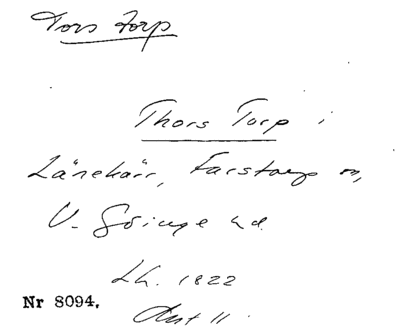 Tors torp
Thors Torp i
Länekärr, Farstorp sn,
V. Göinge hd.
Lh. 1822
Nr 8094.
Avt 11.